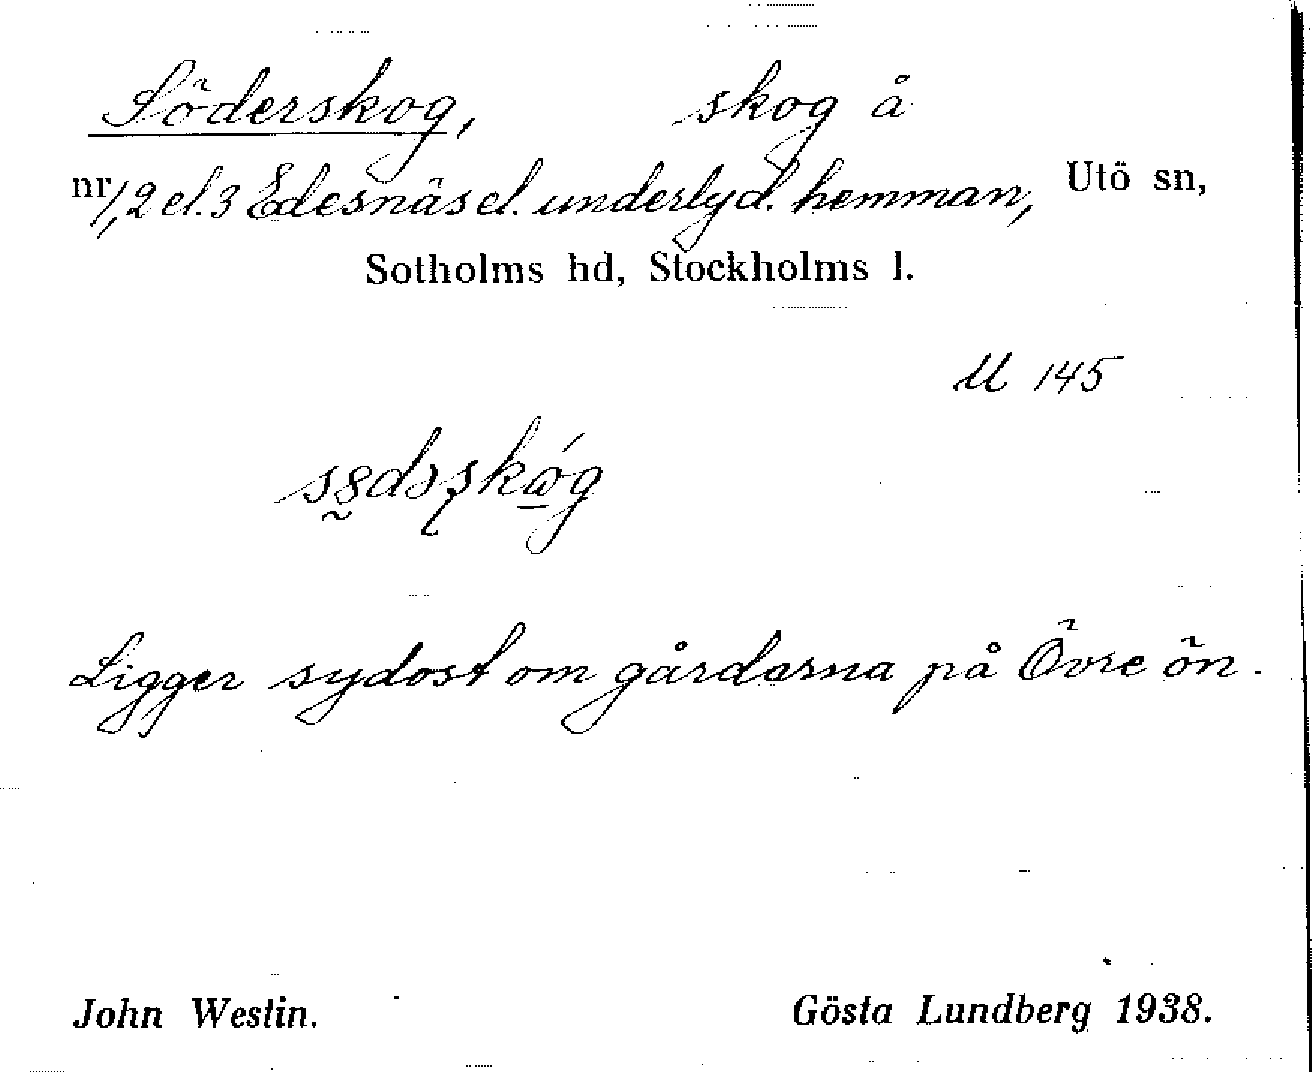 Söderskog, skog å
nr 1, 2 el. 3 Edesnäs el. underlyd. hemman, Utö sn,
Sotholms hd, Stockholms l.
U 145
Ligger sydost om gårdarna på Övre ön.
John Westin. Gösta Lundberg 1938.